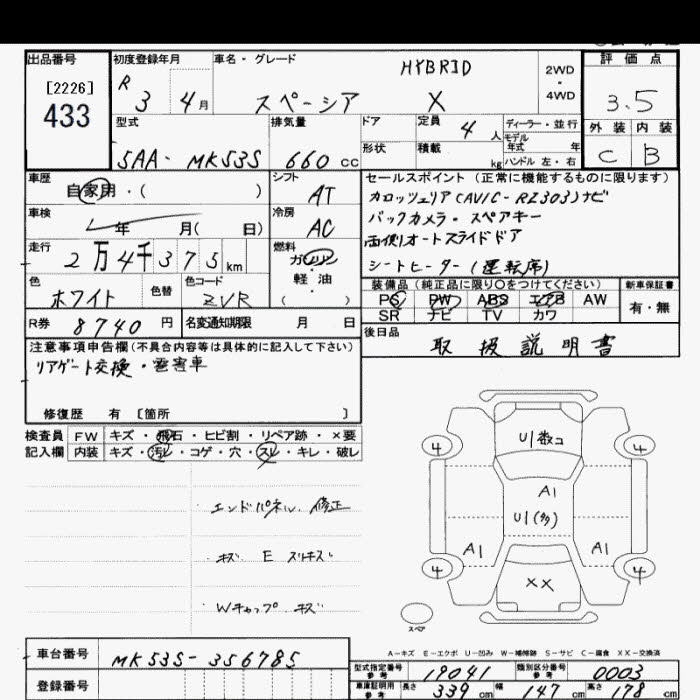 出品番号 初度登録年月 車名・グレード HYBRID 2WD・4WD 評価点
[2226]
433
R 3 4月 スペーシア X 3.5
型式 排気量 ドア 定員 4人 ディーラー・並行 外装 内装
形状 積載 kg モデル年式 年 ハンドル 左・右
5AA- MK53S 660cc C B
車歴 シフト セールスポイント (正常に機能するものに限ります)
自家用・( ) AT カロッツェリア(AVIC-RZ303)ナビ
車検 冷房 バックカメラ・スペアキー
年 月( 日) AC 両側オートスライドドア
走行 燃料 シートヒーター(運転席)
2万4千375km ガソリン・軽油 ( )
色 色替 色コード 装備品(純正品に限り○をつけてください) 新車保証書
ホワイト ZVR PS PW ABS エアB AW 有・無
SR ナビ TV カワ
R券 8740円 名変通知期限 月 日 後日品
取扱説明書
注意事項申告欄(不具合内容等は具体的に記入して下さい)
リアゲート交換・雹害車
修復歴 有〔箇所 〕
検査員 FW キズ・飛石・ヒビ割・リペア跡・×要
記入欄 内装 キズ・汚レ・コゲ・穴・スレ・キレ・破レ
エンドパネル 修正
キズ E スリキズ
Wキャップ キズ
U1数コ
4 4
A1
U1(多)
A1 A1
4 4
XX
スペア
A-キズ E-エクボ U-凹み W-補修跡 S-サビ C-腐食 XX-交換済
車台番号 MK53S-356785 型式指定番号 参考 19041 類別区分番号 参考 0003
登録番号 車庫証明用 参考 長さ 339cm 幅 147cm 高さ 178cm